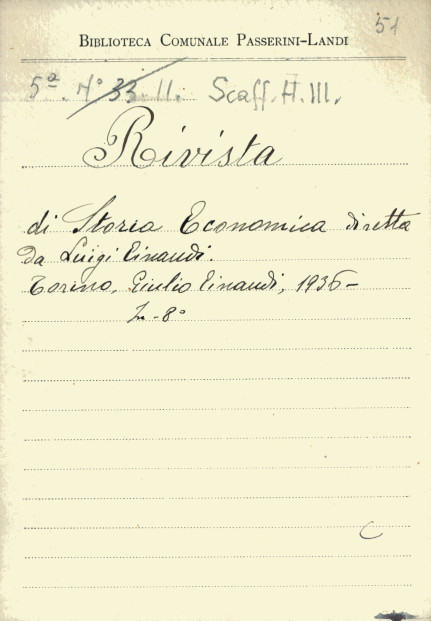 51
BIBLIOTECA COMUNALE PASSERINI-LANDI
5ª. N° 33. 11. Scaff. H. III.
Rivista
di Storia Economica diretta
da Luigi Einaudi.
Torino, Giulio Einaudi, 1936-
In-8°
C